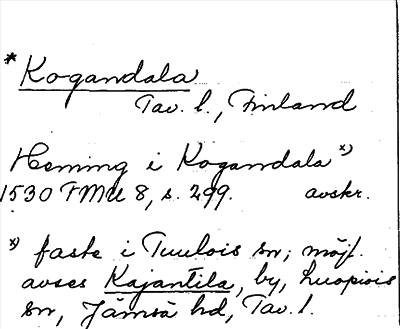 * Kogandala
Tav. l., Finland
Heming i Kogandala x)
1530 FMU 8, s. 299. avskr.
x) faste i Tuulois sn; möjl.
avses Kajantila, by, Luopiois
sn, Jämsä hd, Tav. l.